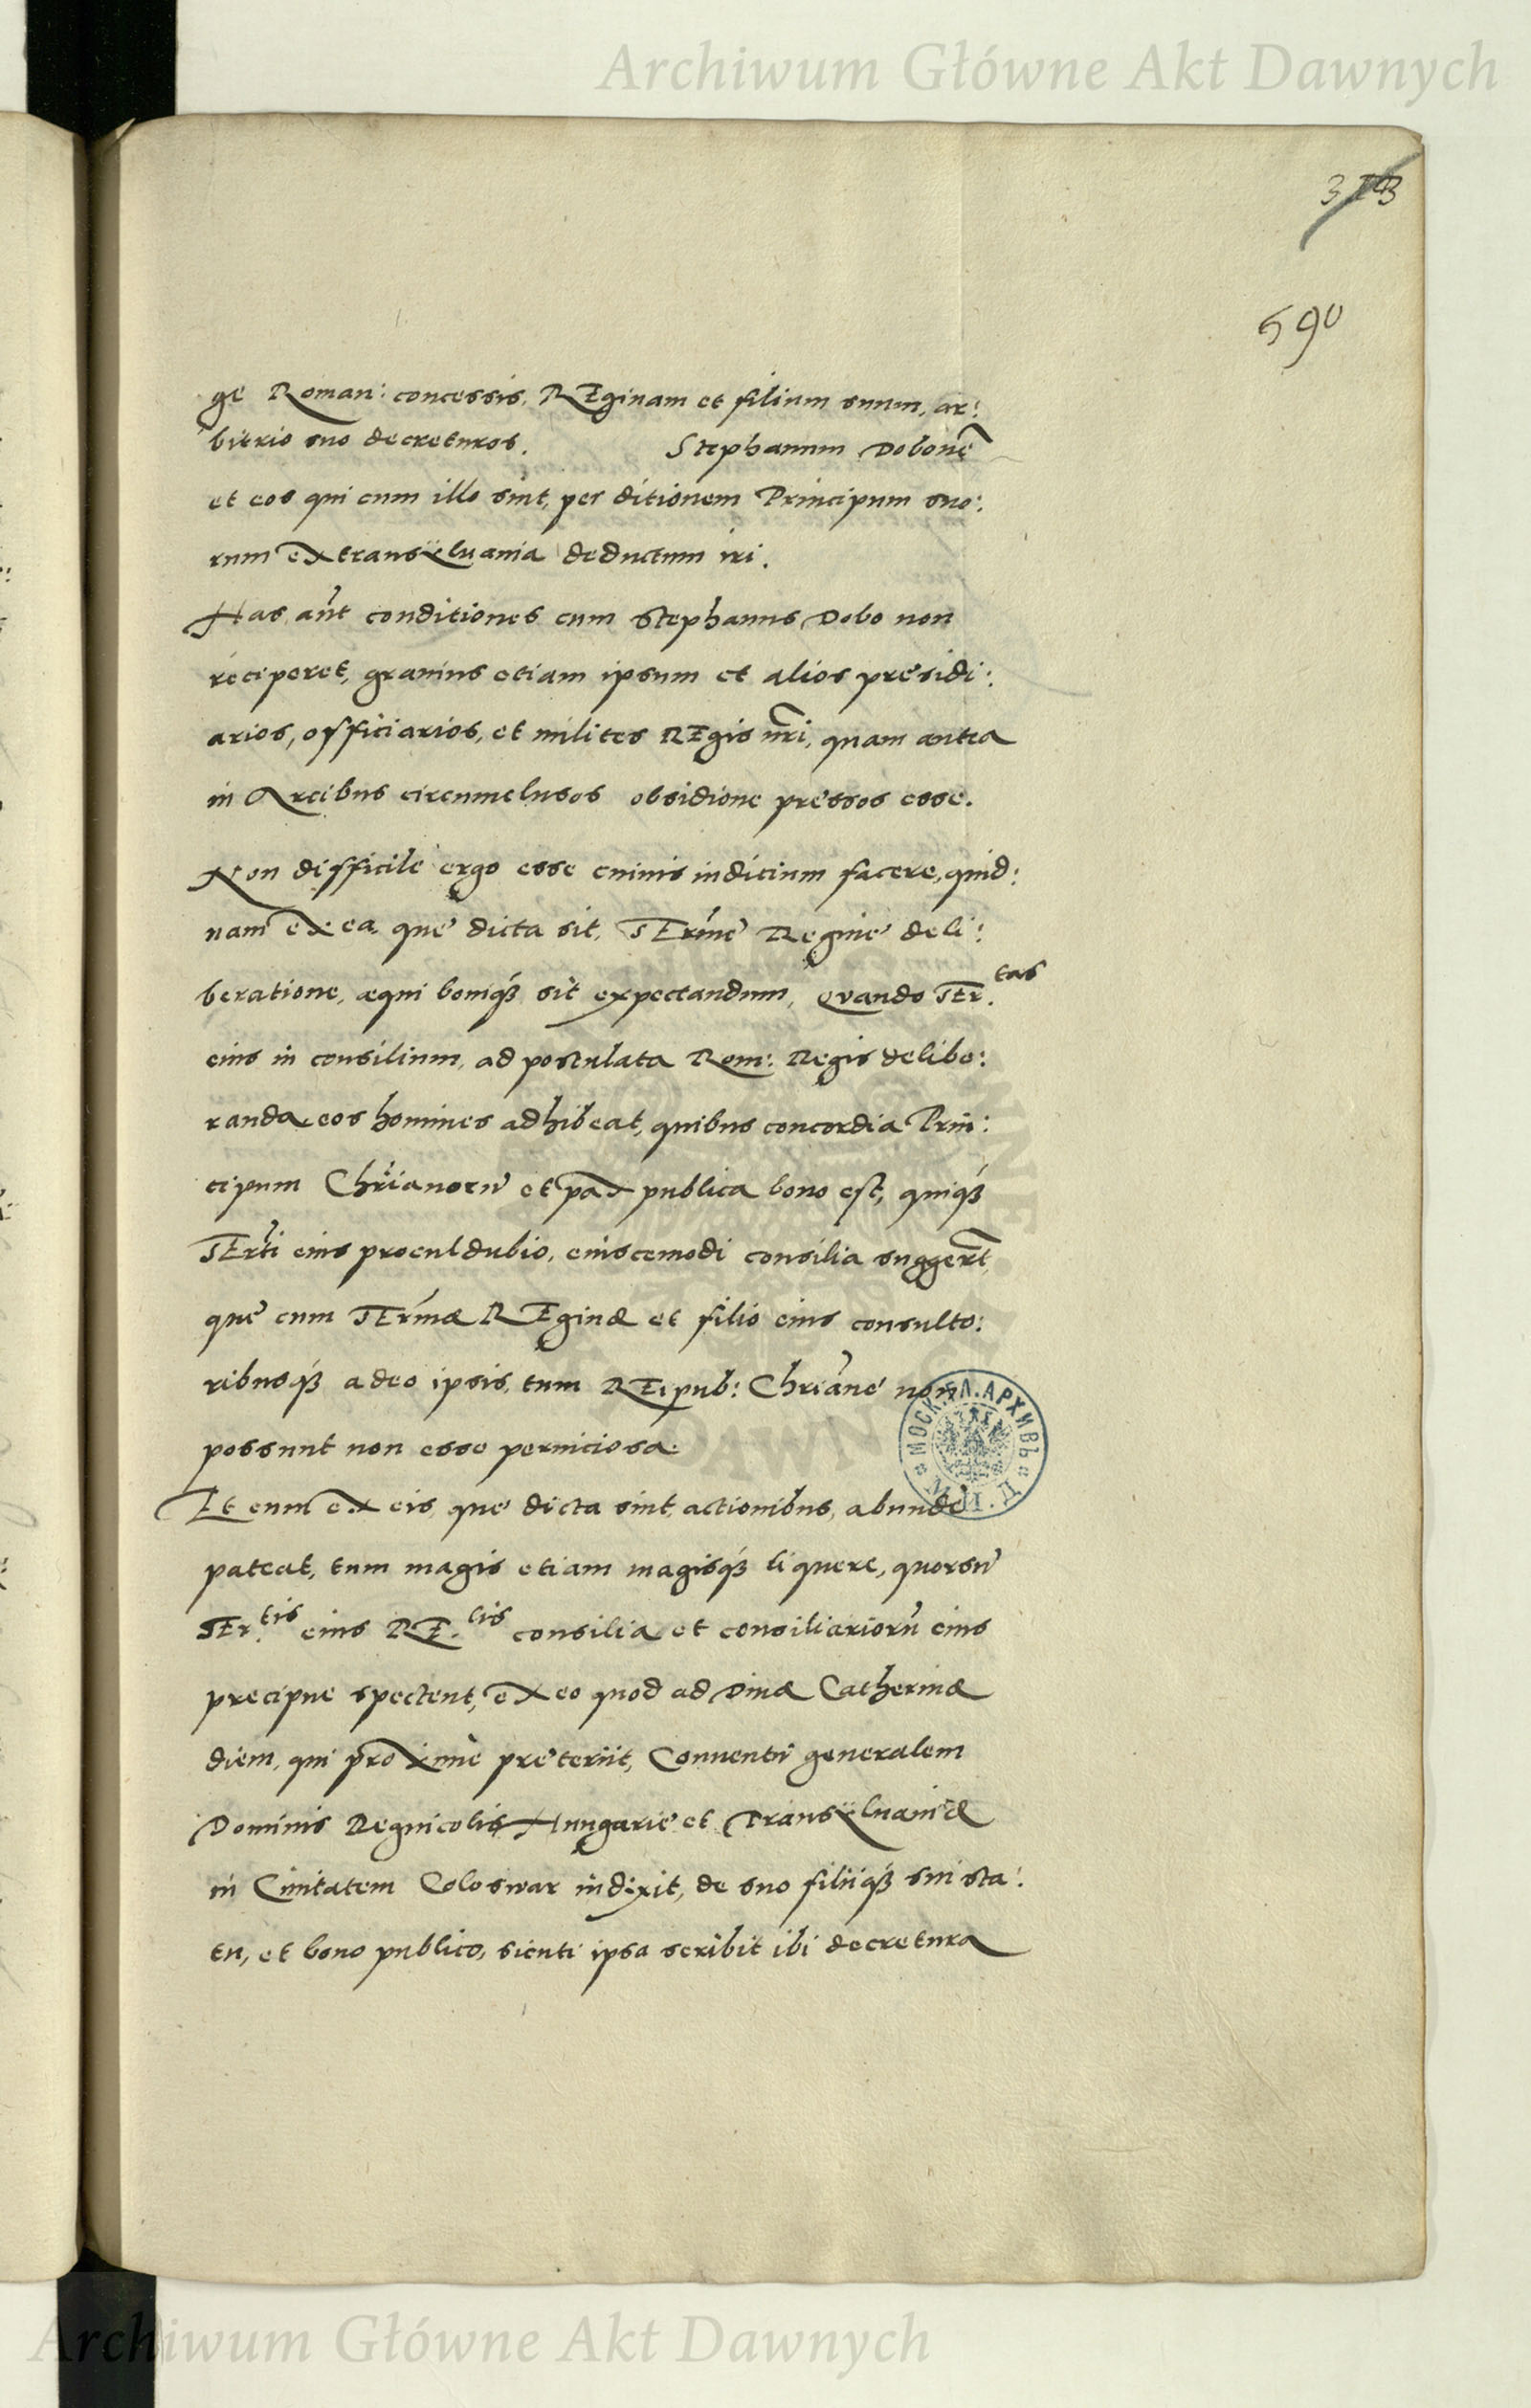 Archiwum Główne Akt Dawnych
590
ge Roman: concessis, REginam et filium suum, ar:
bitrio suo decreturos. Stephanum Dobonē
et eos qui cum illo sint, per ditionem Principum suo:
rum ex transÿluania deductum iri.
Has aūt conditiones cum Stephanus Dobo non
reciperet, grauius etiam ipsum et alios presidi:
arios, officiarios, et milites REgis nr̄i, quam antea
in Arcibus circumclusos obsidione pressos esse.
Non difficile ergo esse cuiuis indicium facere, quid:
nam ex ea, que dicta sit, SErīne Regine deli:
beratione, æqui boniq́ꝫ sit expectandum, Quando SEr.tas
eius in consilium, ad postulata Rom: Regis delibe:
randa eos homines adhibeat, quibus concordia Prin:
cipum Chr̄ianorū et pax publica bono est, quiq́ꝫ
SEr̄ti eius proculdubio, eiuscemodi consilia suggerūt,
que cum SEr̄mæ REginæ et filio eius consulto:
ribusq́ꝫ adeo ipsis, tum REipub: Chr̄iane non
possunt non esse perniciosa.
Et cum ex eis, que dicta sint, actionibus, abunde
pateat, tum magis etiam magisq́ꝫ liquere, quorsū
SEr.tis eius RE.tis consilia et consiliariorū eius
precipue spectent, ex eo quod ad Diuæ Catherinæ
diem, qui proxime preteriit, Conuentū generalem
Dominis Regnicolis Hungarie et Transÿluaniæ
in Ciuitatem Coloswar indixit, de suo filiiq́ꝫ sui sta:
tu, et bono publico, sicuti ipsa scribit ibi decretura
МОСК. ГЛ. АРХИВЪ
Archiwum Główne Akt Dawnych